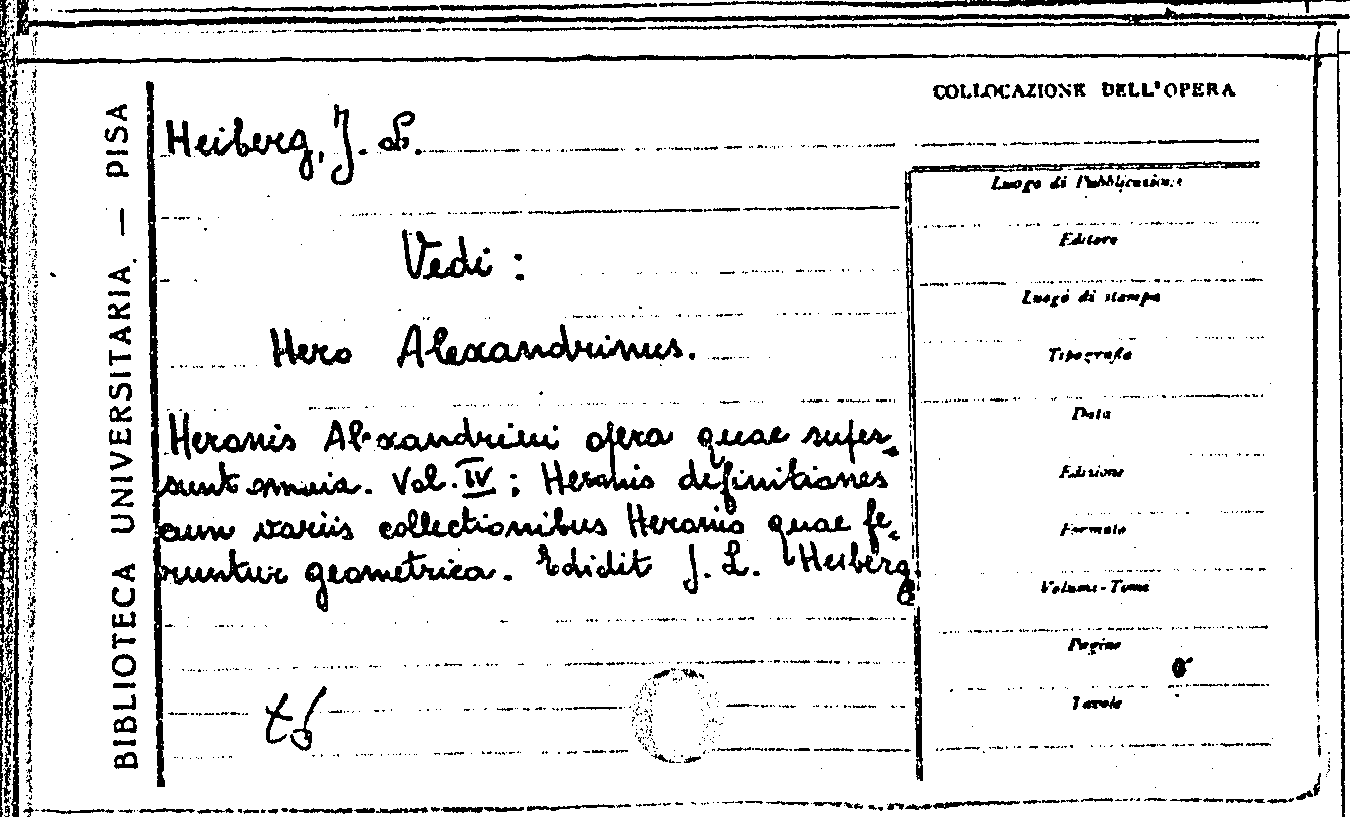 COLLOCAZIONE DELL'OPERA
BIBLIOTECA UNIVERSITARIA. — PISA
Heiberg, J. L.
Vedi :
Hero Alexandrinus.
Heronis Alexandrini opera quae super-
sunt omnia. Vol. IV ; Heronis definitiones
cum variis collectionibus Heronis quae fe-
runtur geometrica. Edidit J. L. Heiberg
Luogo di Pubblicazione
Editore
Luogo di stampa
Tipografia
Data
Edizione
Formato
Volume-Tomo
Pagine
Tavole